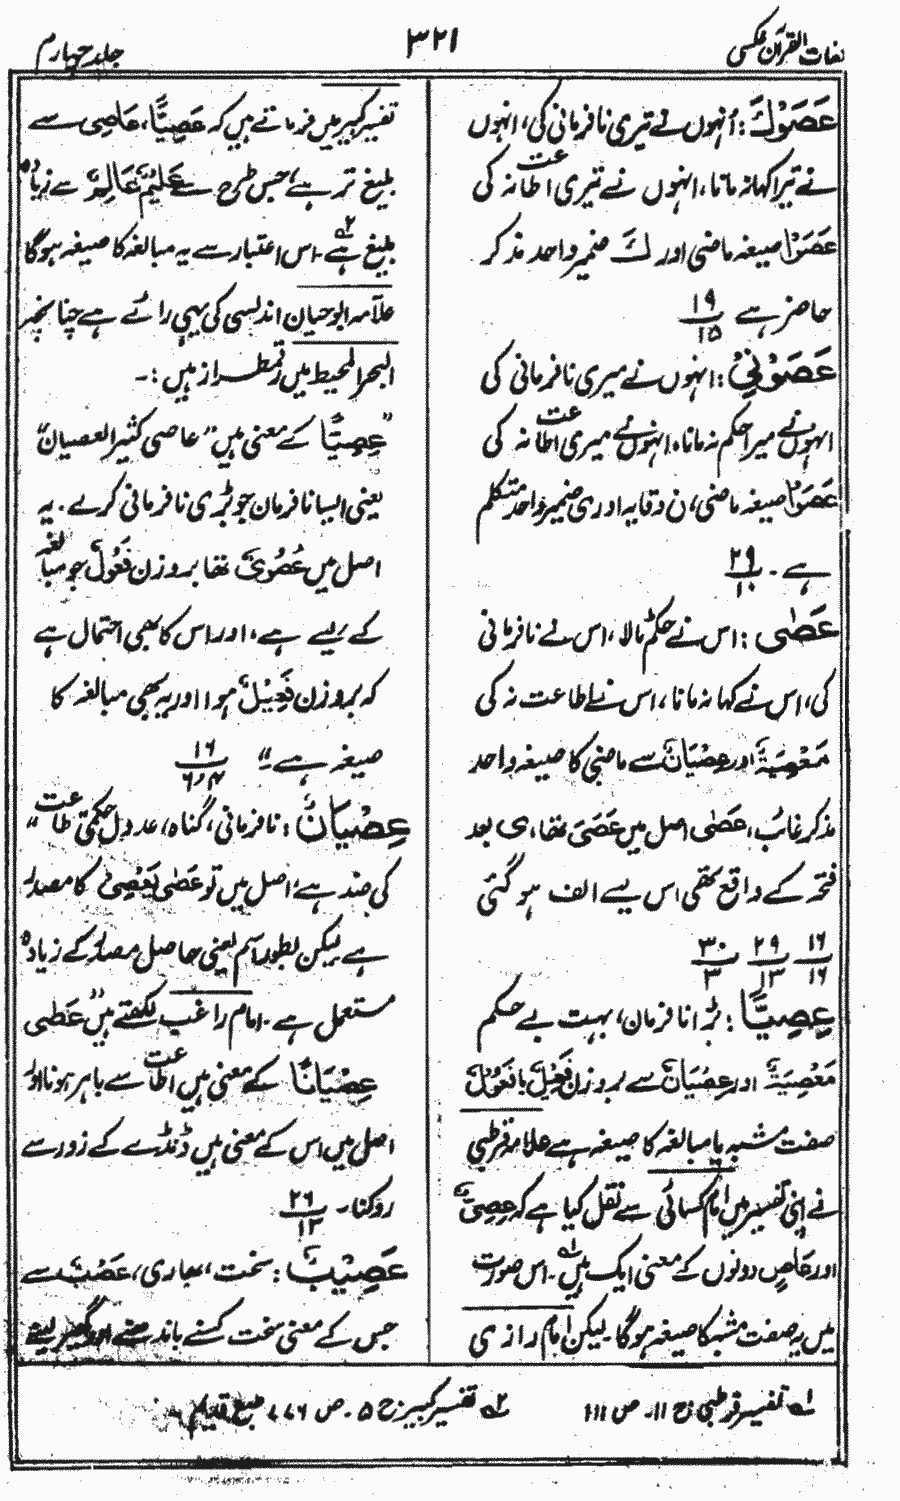 لغات القرآن عکسی
۳۲۱
جلد چہارم
عَصَوْكَ : اُنہوں نے تیری نافرمانی کی، انہوں
نے تیرا کہا نہ مانا، انہوں نے تیری اطاعت نہ کی
عَصَوْا صیغہ ماضی اور كَ ضمیر واحد مذکر
حاضر ہے ۱۹/۱۵
عَصَوْنِیْ : انہوں نے میری نافرمانی کی
انہوں نے میرا حکم نہ مانا، انہوں نے میری اطاعت نہ کی
عَصَوْا صیغہ ماضی، ن وقایہ اور ی ضمیر واحد متکلم
ہے ۔ ۲۹/۱۰
عَصٰی : اس نے حکم ٹالا، اس نے نافرمانی
کی، اس نے کہا نہ مانا، اس نے اطاعت نہ کی
مَعْصِیَۃٌ اور عِصْیَانٌ سے ماضی کا صیغہ واحد
مذکر غائب، عَصٰی اصل میں عَصَیَ تھا، ی بعد
فتحہ کے واقع تھی اس لیے الف ہو گئی
۱۶/۱۶ ۲۹/۱۳ ۳۰/۳
عِصِیًّا : بڑا نافرمان، بہت بے حکم
مَعْصِیَۃٌ اور عِصْیَانٌ سے بروزن فَعِیْلٌ یا فَعُوْلٌ
صفت مشبہ یا مبالغہ کا صیغہ ہے علامہ قرطبی
نے اپنی تفسیر میں امام کسائی سے نقل کیا ہے کہ عِصِیٌّ
اور عَاصٍ دونوں کے معنی ایک ہیں ۱ ۔ اس صورت
میں یہ صفت مشبہ کا صیغہ ہوگا۔ لیکن امام رازی
تفسیر کبیر میں فرماتے ہیں کہ عَصِیًّا، عَاصِی سے
بلیغ تر ہے، جس طرح سے عَلِیْمٌ عَالِمٌ سے زیادہ
بلیغ ہے ۲ ۔ اس اعتبار سے یہ مبالغہ کا صیغہ ہوگا
علامہ ابوحیان اندلسی کی یہی رائے ہے چنانچہ
البحر المحیط میں رقمطراز ہیں :۔
"عِصِیًّا کے معنی ہیں "عاصی کثیر العصیان"
یعنی ایسا نافرمان جو بڑی نافرمانی کرے۔ یہ
اصل میں عُصُوْیٌ تھا بروزن فَعُوْلٌ جو مبالغہ
کے لیے ہے، اور اس کا بھی احتمال ہے
کہ بروزن فَعِیْلٌ ہو اور یہ بھی مبالغہ کا
صیغہ ہے" ۱۶/۴ر۶
عِصْیَانٌ : نافرمانی، گناہ، عدول حکمی طاعت
کی ضد ہے، اصل میں تو عَصٰی یَعْصِیْ کا مصدر
ہے لیکن بطور اسم یعنی حاصل مصدر کے زیادہ
مستعمل ہے ۔ امام راغب لکھتے ہیں "عَصٰی
عِصْیَانًا کے معنی ہیں اطاعت سے باہر ہونا اور
اصل میں اس کے معنی ہیں ڈنڈے کے زور سے
روکنا ۔ ۲۶/۱۳
عَصِیْبٌ : سخت، بھاری، عَصْبٌ سے
جس کے معنی سخت کسنے باندھنے اور گھیر لینے
۱ تفسیر قرطبی ج ۱۱۔ ص ۱۱۱
۲ تفسیر کبیر ج ۵ ۔ ص ۷۷۶ طبع قدیم